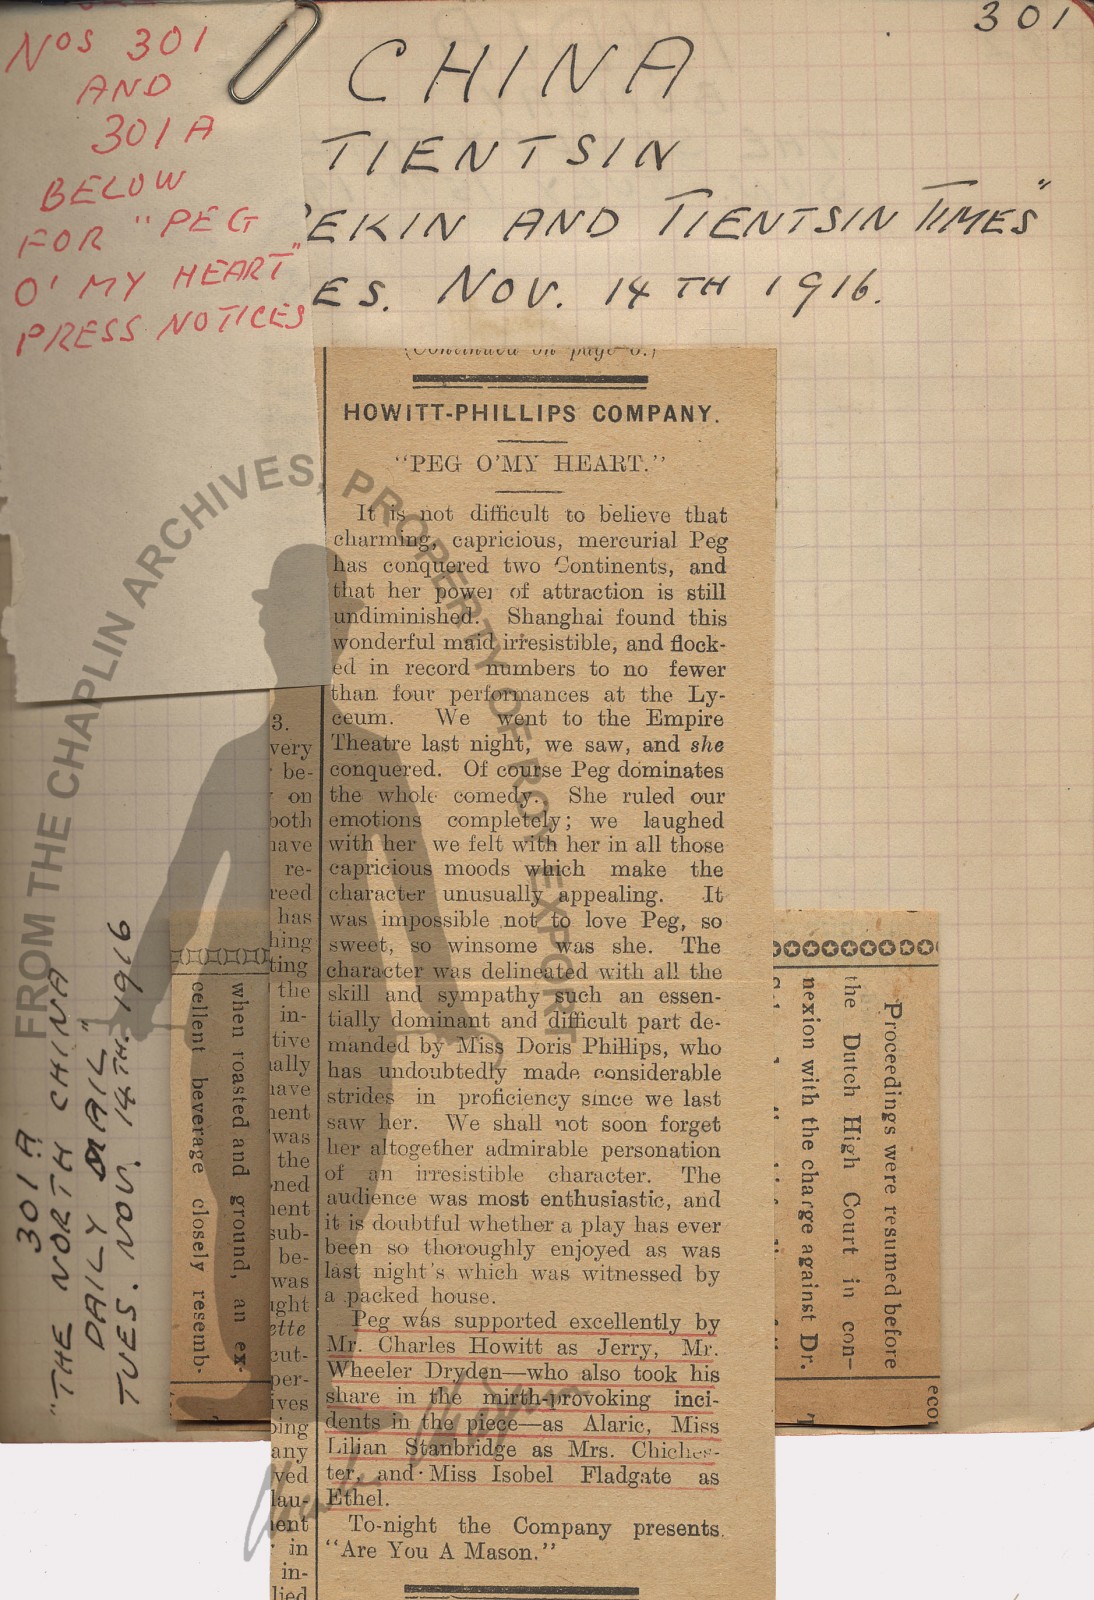 301
Nos 301
AND
301A
BELOW
FOR "PEG
O' MY HEART"
PRESS NOTICES
CHINA
TIENTSIN
EKIN AND TIENTSIN TIMES"
ES. NOV. 14TH 1916.
HOWITT-PHILLIPS COMPANY.
"PEG O'MY HEART."
It is not difficult to believe that
charming, capricious, mercurial Peg
has conquered two Continents, and
that her power of attraction is still
undiminished. Shanghai found this
wonderful maid irresistible, and flock-
ed in record numbers to no fewer
than four performances at the Ly-
ceum. We went to the Empire
Theatre last night, we saw, and she
conquered. Of course Peg dominates
the whole comedy. She ruled our
emotions completely; we laughed
with her we felt with her in all those
capricious moods which make the
character unusually appealing. It
was impossible not to love Peg, so
sweet, so winsome was she. The
character was delineated with all the
skill and sympathy such an essen-
tially dominant and difficult part de-
manded by Miss Doris Phillips, who
has undoubtedly made considerable
strides in proficiency since we last
saw her. We shall not soon forget
her altogether admirable personation
of an irresistible character. The
audience was most enthusiastic, and
it is doubtful whether a play has ever
been so thoroughly enjoyed as was
last night's which was witnessed by
a packed house.
Peg was supported excellently by
Mr. Charles Howitt as Jerry, Mr.
Wheeler Dryden—who also took his
share in the mirth-provoking inci-
dents in the piece—as Alaric, Miss
Lilian Stanbridge as Mrs. Chiches-
ter, and Miss Isobel Fladgate as
Ethel.
To-night the Company presents
"Are You A Mason."
3.
very
be-
on
both
have
re-
reed
has
hing
ting
the
in-
tive
ally
have
nent
was
the
ned
nent
sub-
be-
was
ught
ette
cut-
per-
ives
ping
any
ved
lau-
ent
in
in-
lied
301A
"THE NORTH CHINA
DAILY MAIL"
TUES. NOV. 14TH. 1916
when roasted and ground, an ex-
cellent beverage closely resemb-
Proceedings were resumed before
the Dutch High Court in con-
nexion with the charge against Dr.
econ
FROM THE CHAPLIN ARCHIVES, PROPERTY OF ROY EXPORT